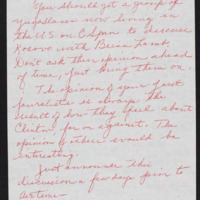 You should get a group of
Yugoslavs now living in
the U.S. on CSpan to discuss
Kosovo with Brian Lamb.
Don't ask their opinion ahead
of time, just bring them on.
The opinion of your
journalists is always the
result of how they feel about
Clinton, for or against. The
opinion of others would be
interesting.
Just announce this
discussion a few days prior to
airtime